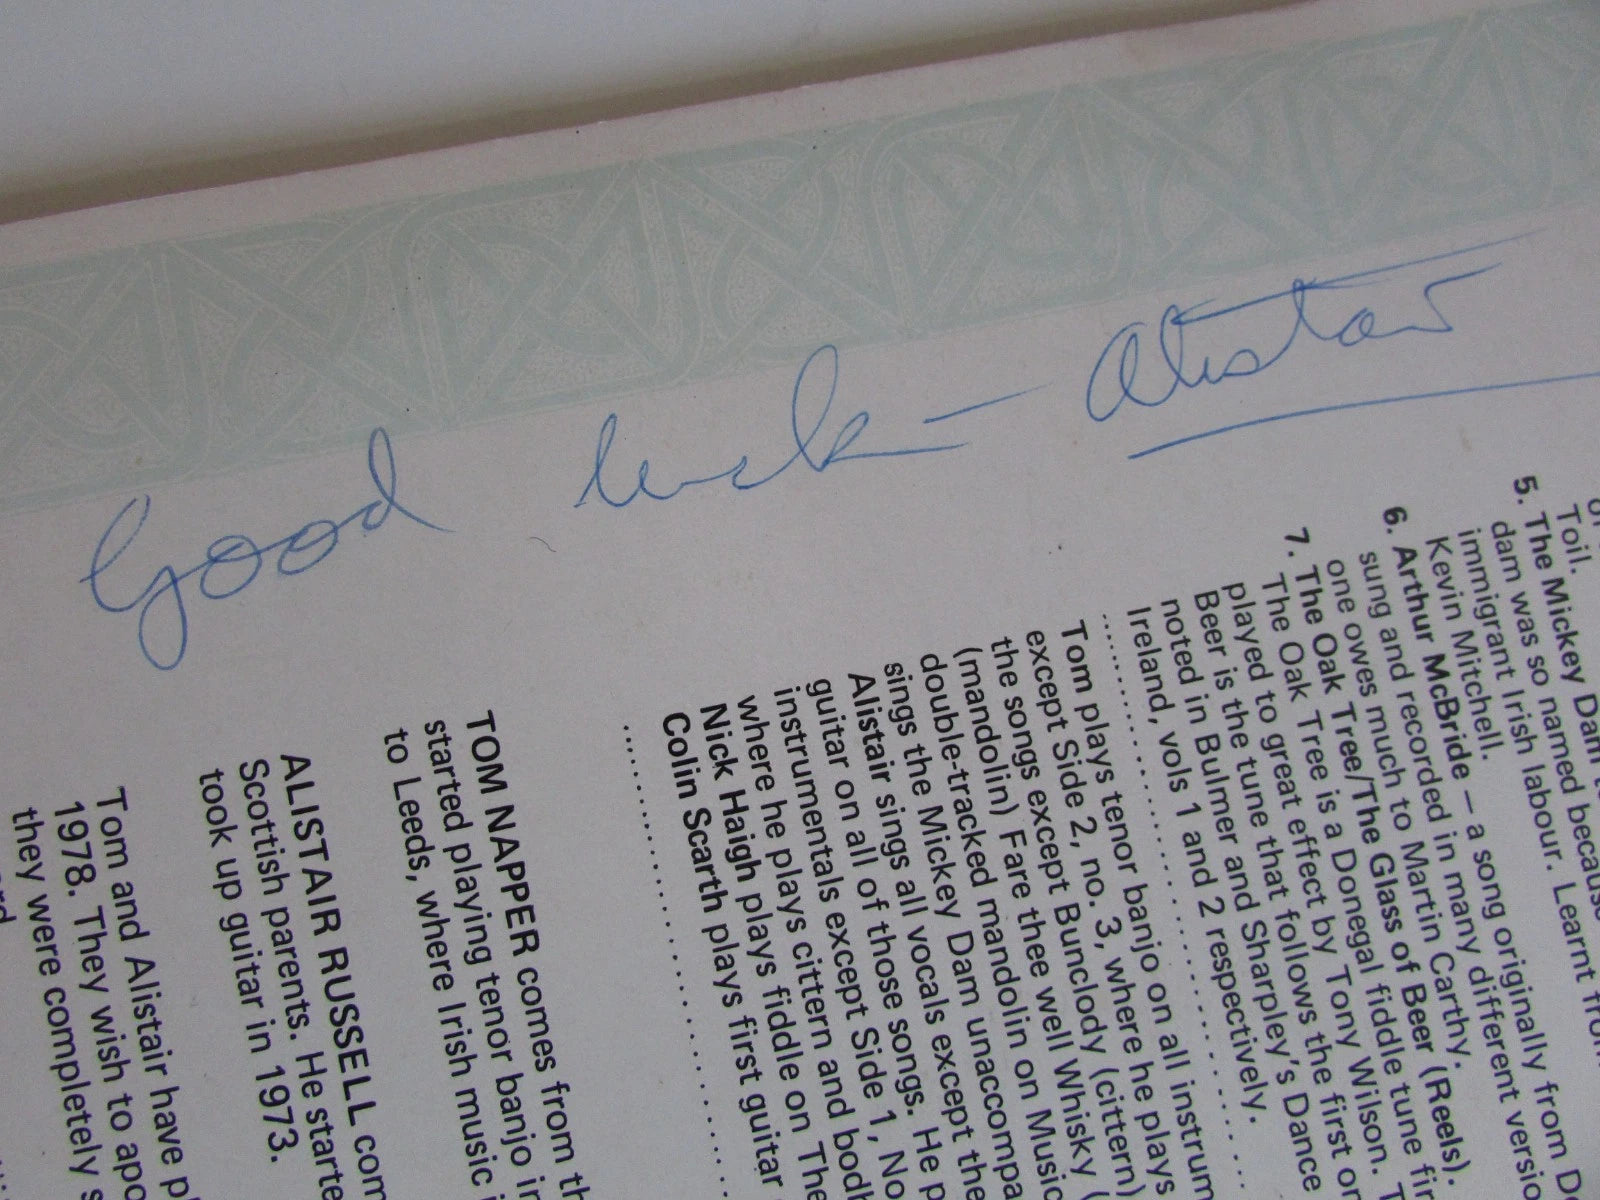 Good luck – Alistair
Toil.
5. The Mickey Dam
dam was so named because
immigrant Irish labour. Learnt from
Kevin Mitchell.
6. Arthur McBride – a song originally from D
sung and recorded in many different versio
one owes much to Martin Carthy.
7. The Oak Tree/The Glass of Beer (Reels).
The Oak Tree is a Donegal fiddle tune fir
played to great effect by Tony Wilson. T
Beer is the tune that follows the first on
noted in Bulmer and Sharpley's Dance
Ireland, vols 1 and 2 respectively.
Tom plays tenor banjo on all instrum
except Side 2, no. 3, where he plays
the songs except Bunclody (cittern)
(mandolin) Fare thee well Whisky (
double-tracked mandolin on Music
sings the Mickey Dam unaccompa
Alistair sings all vocals except the
guitar on all of those songs. He p
instrumentals except Side 1, No
where he plays cittern and bodh
Nick Haigh plays fiddle on The
Colin Scarth plays first guitar
TOM NAPPER comes from th
started playing tenor banjo in
to Leeds, where Irish music i
ALISTAIR RUSSELL com
Scottish parents. He starte
took up guitar in 1973.
Tom and Alistair have pl
1978. They wish to apo
they were completely s